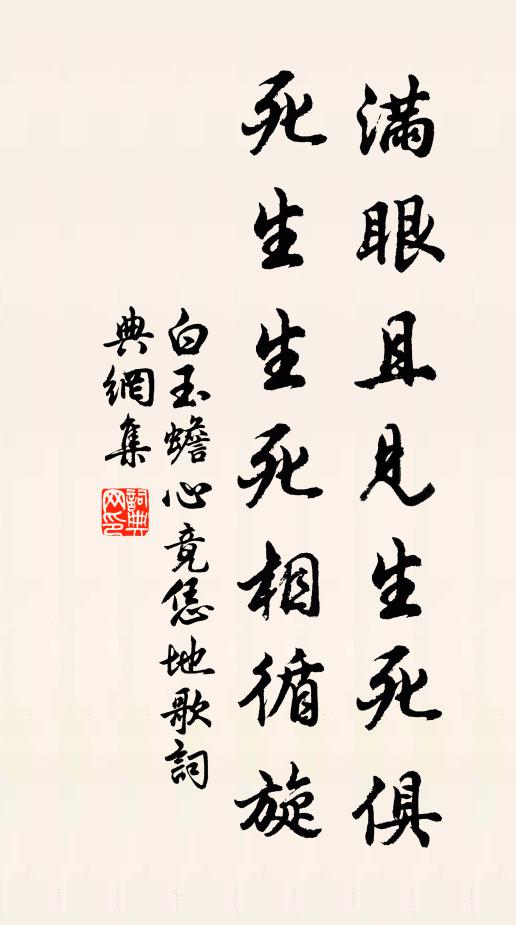 滿眼且見生死俱
死生生死相循旋
白玉蟾心竟恁地歌詞
典網集
詞典網印